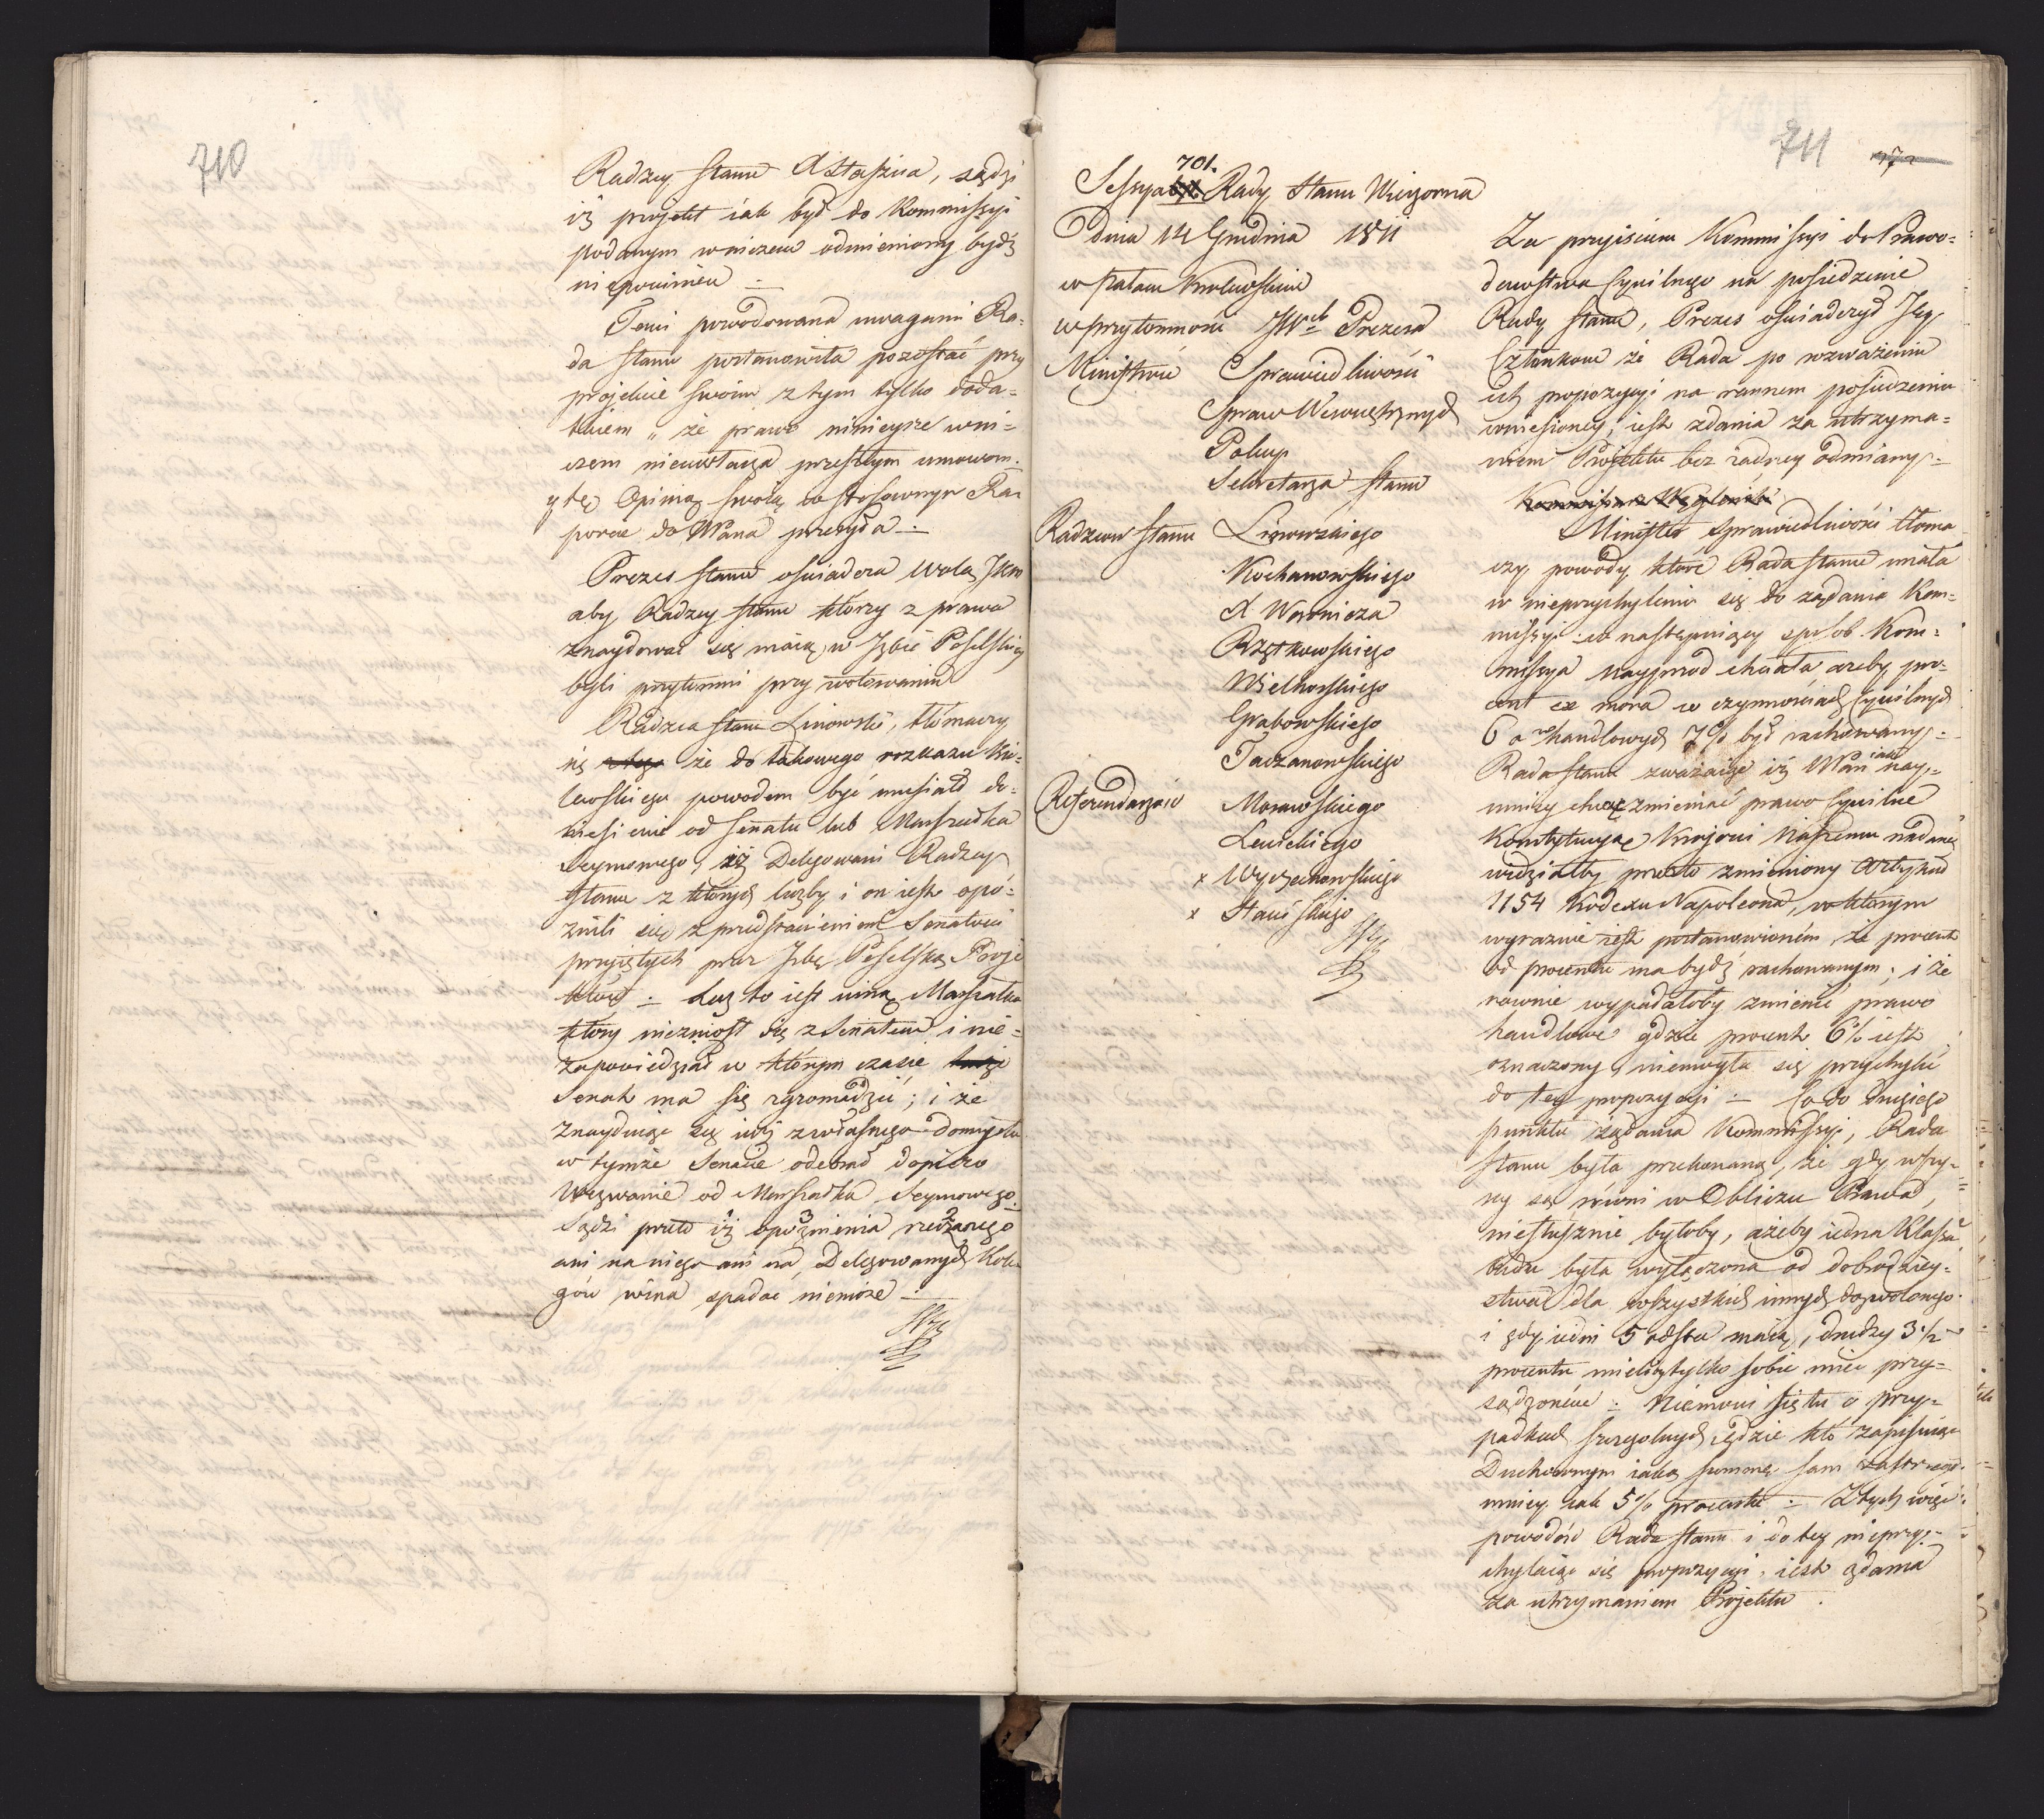 710
Radzcy Stanu X Staszica, sądzi
iż projekt iak był do Kommissyi
podanym w niczem odmieniony bydź
niepowinien :
Temi powodowana uwagami Ra-
da Stanu postanowiła pozostać przy
projekcie swoim z tym tylko doda-
tkiem „ że prawo ninieysze wni-
czem nieuwłacza przeszłym umowom.
y tę Opinią swoią w stosownym Ra-
porcie do NPana przesyła :
Prezes Stanu oświadcza wolą JKM
aby Radzcy Stanu którzy z prawa
znaydować się maią w Izbie Poselskiey
byli przytomni przy wotowaniu
Radzca Stanu Linowski, tłómaczy
się że do takowego rozkazu Kró-
lewskiego powodem być musiało do-
niesienie od Senatu lub Marszałka
Seymowego, iż Delegowani Radzcy
Stanu z których liczby i on iest opó-
źnili się z przedstawieniem Senatowi
przyiętych przez Izbę Poselską Proje-
któw : Lecz to iest winą Marszałka
który niezniosł się z Senatem i nie-
zapowiedział w którym czasie
Senat ma się zgromadzić ; i że
znayduiąc się iuż z własnego domysłu
w tymże Senacie odebrał dopiero
Wezwanie od Marszałka Seymowego.
Sądzi przeto iż opóźnienia rzeczonego
ani na niego ani na Delegowanych Kole-
gów wina spadać niemoże :
711
701.
Sessya Rady Stanu Wieczorna
Dnia 14 Grudnia 1811
w Pałacu Królewskim
w przytomności JW Prezesa
Ministrów Sprawiedliwości
Spraw Wewnętrznych
Policyi
Sekretarza Stanu
Radzców Stanu Linowskiego
Kochanowskiego
X Woronicza
Rzętkowskiego
Wielhorskiego
Grabowskiego
Taczanowskiego
Referendarzów Morawskiego
Lewickiego
x Wyczechowskiego
x Staniskiego
Za przyiściem Kommissyi do Prawo-
dawstwa Cywilnego na posiedzenie
Rady Stanu, Prezes oświadczył Jey
Członkom że Rada po rozważeniu
ich propozycyi na rannem posiedzeniu
wniesioney, iest zdania za utrzyma-
niem Projektu bez żadney odmiany :
Minister Sprawiedliwości tłoma
czy powody które Rada Stanu miała
w nieprzychyleniu się do żądania Kom-
missyi w następuiący sposób. Kom-
missya nayprzod chciała ażeby pro-
cent ex mora w czynnościach Cywilnych
6 a w handlowych 7% był rachowany :
Rada Stanu zważaiąc iż NPan iak nay-
mniey chcąc zmieniać prawo Cywilne
Konstytucyą Kraiowi Naszemu nadane
widziałby przeto zmieniony Artykuł
1154 Kodexu Napoleona, w którym
wyraźnie iest postanowioném, że procent
od procentu ma bydź rachowanym ; i że
rownie wypadałoby zmienić prawo
handlowe gdzie procent 6% iest
oznaczony, niemogła się przychylić
do tey propozycyi : Co do drugiego
punktu żądania Kommissyi, Rada
Stanu była przekonaną, że gdy wszy-
scy są rowni w Obliczu Prawa,
niesłusznie byłoby, ażeby iedna Klassa
ludu była wyłączona od dobrodziey-
stwa dla wszystkich innych dozwolonego
i gdy iedni 5 od sta maią, drudzy 3 1/2
procentu mieliby tylko sobie mieć przy-
sądzonéne : Niemówi się tu o przy-
padkach szczególnych gdzie kto zapisuiąc
Duchownym iaką summę sam zastrzegł
mniey iak 5% procentu : Z tych więc
powodów Rada Stanu i do tey nieprzy-
chylaiąc się propozycyi, iest zdania
za utrzymaniem Projektu .